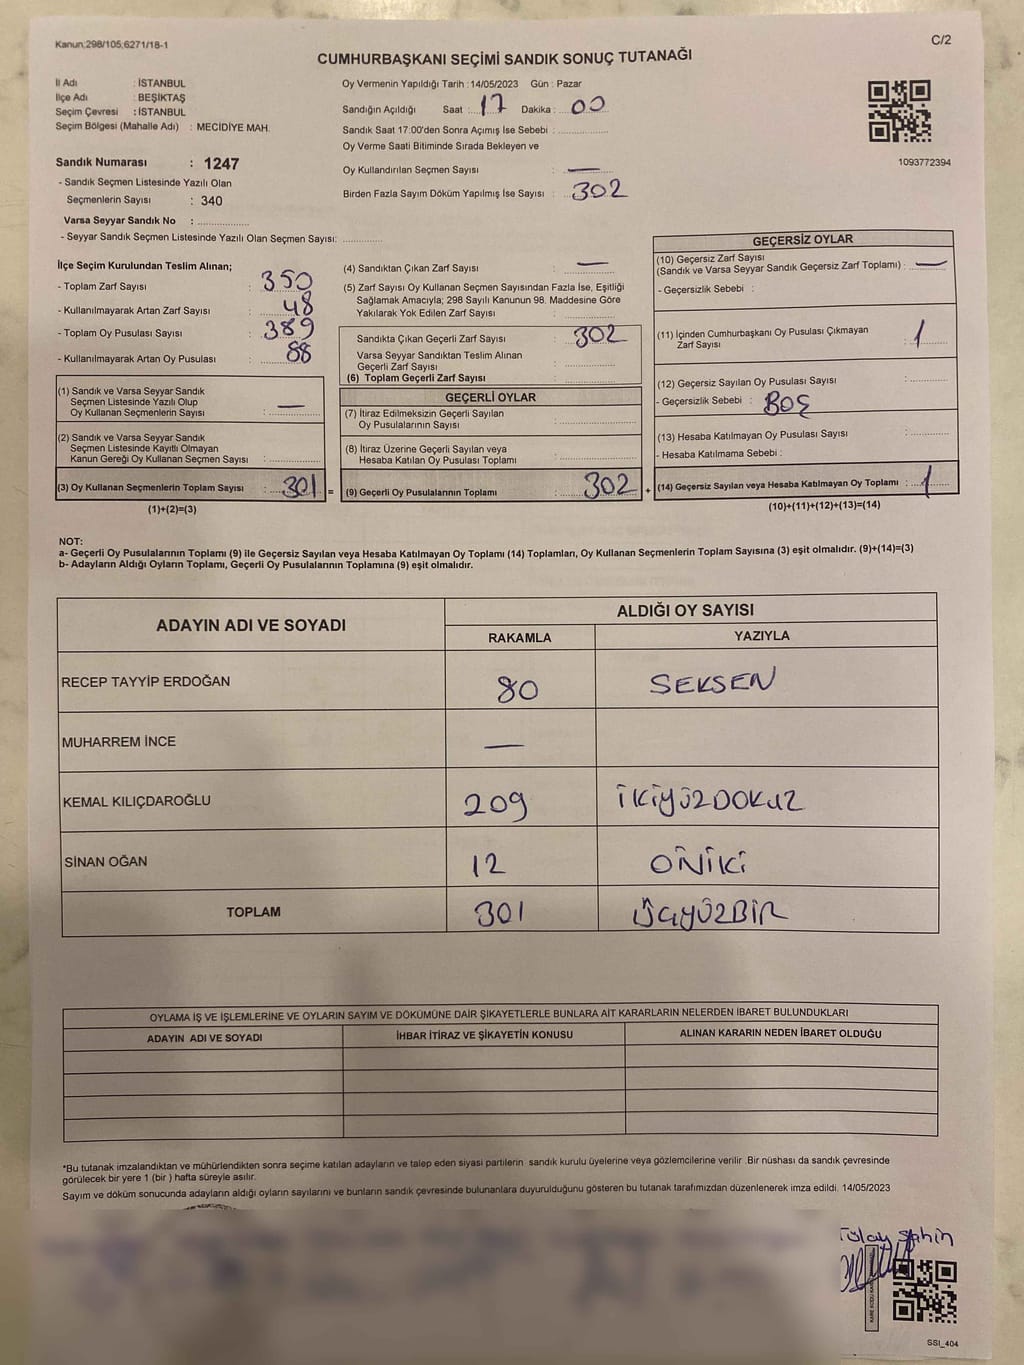 Kanun;298/105;6271/18-1
C/2
CUMHURBAŞKANI SEÇİMİ SANDIK SONUÇ TUTANAĞI
İl Adı : İSTANBUL
İlçe Adı : BEŞİKTAŞ
Seçim Çevresi : İSTANBUL
Seçim Bölgesi (Mahalle Adı) : MECİDİYE MAH.
Sandık Numarası : 1247
- Sandık Seçmen Listesinde Yazılı Olan
Seçmenlerin Sayısı : 340
Varsa Seyyar Sandık No :
- Seyyar Sandık Seçmen Listesinde Yazılı Olan Seçmen Sayısı:
Oy Vermenin Yapıldığı Tarih : 14/05/2023 Gün : Pazar
Sandığın Açıldığı Saat : 17 Dakika : 00
Sandık Saat 17:00'den Sonra Açımış İse Sebebi :
Oy Verme Saati Bitiminde Sırada Bekleyen ve
Oy Kullandırılan Seçmen Sayısı : —
Birden Fazla Sayım Döküm Yapılmış İse Sayısı : 302
1093772394
İlçe Seçim Kurulundan Teslim Alınan;
- Toplam Zarf Sayısı : 350
- Kullanılmayarak Artan Zarf Sayısı : 48
- Toplam Oy Pusulası Sayısı : 389
- Kullanılmayarak Artan Oy Pusulası : 88
(1) Sandık ve Varsa Seyyar Sandık
Seçmen Listesinde Yazılı Olup
Oy Kullanan Seçmenlerin Sayısı : —
(2) Sandık ve Varsa Seyyar Sandık
Seçmen Listesinde Kayıtlı Olmayan
Kanun Gereği Oy Kullanan Seçmen Sayısı :
(3) Oy Kullanan Seçmenlerin Toplam Sayısı : 301 =
(1)+(2)=(3)
(4) Sandıktan Çıkan Zarf Sayısı : —
(5) Zarf Sayısı Oy Kullanan Seçmen Sayısından Fazla İse, Eşitliği
Sağlamak Amacıyla; 298 Sayılı Kanunun 98. Maddesine Göre
Yakılarak Yok Edilen Zarf Sayısı :
Sandıkta Çıkan Geçerli Zarf Sayısı : 302
Varsa Seyyar Sandıktan Teslim Alınan
Geçerli Zarf Sayısı :
(6) Toplam Geçerli Zarf Sayısı :
GEÇERLİ OYLAR
(7) İtiraz Edilmeksizin Geçerli Sayılan
Oy Pusulalarının Sayısı :
(8) İtiraz Üzerine Geçerli Sayılan veya
Hesaba Katılan Oy Pusulası Toplamı :
(9) Geçerli Oy Pusulalarının Toplamı : 302 +
GEÇERSİZ OYLAR
(10) Geçersiz Zarf Sayısı
(Sandık ve Varsa Seyyar Sandık Geçersiz Zarf Toplamı) : —
- Geçersizlik Sebebi :
(11) İçinden Cumhurbaşkanı Oy Pusulası Çıkmayan
Zarf Sayısı : 1
(12) Geçersiz Sayılan Oy Pusulası Sayısı :
- Geçersizlik Sebebi : BOŞ
(13) Hesaba Katılmayan Oy Pusulası Sayısı :
- Hesaba Katılmama Sebebi :
(14) Geçersiz Sayılan veya Hesaba Katılmayan Oy Toplamı : 1
(10)+(11)+(12)+(13)=(14)
NOT:
a- Geçerli Oy Pusulalarının Toplamı (9) ile Geçersiz Sayılan veya Hesaba Katılmayan Oy Toplamı (14) Toplamları, Oy Kullanan Seçmenlerin Toplam Sayısına (3) eşit olmalıdır. (9)+(14)=(3)
b- Adayların Aldığı Oyların Toplamı, Geçerli Oy Pusulalarının Toplamına (9) eşit olmalıdır.
ADAYIN ADI VE SOYADI
ALDIĞI OY SAYISI
RAKAMLA YAZIYLA
RECEP TAYYİP ERDOĞAN 80 SEKSEN
MUHARREM İNCE —
KEMAL KILIÇDAROĞLU 209 İKİYÜZDOKUZ
SİNAN OĞAN 12 ONİKİ
TOPLAM 301 ÜÇYÜZBİR
OYLAMA İŞ VE İŞLEMLERİNE VE OYLARIN SAYIM VE DÖKÜMÜNE DAİR ŞİKAYETLERLE BUNLARA AİT KARARLARIN NELERDEN İBARET BULUNDUKLARI
ADAYIN ADI VE SOYADI İHBAR İTİRAZ VE ŞİKAYETİN KONUSU ALINAN KARARIN NEDEN İBARET OLDUĞU
*Bu tutanak imzalandıktan ve mühürlendikten sonra seçime katılan adayların ve talep eden siyasi partilerin sandık kurulu üyelerine veya gözlemcilerine verilir .Bir nüshası da sandık çevresinde
görülecek bir yere 1 (bir ) hafta süreyle asılır.
Sayım ve döküm sonucunda adayların aldığı oyların sayılarını ve bunların sandık çevresinde bulunanlara duyurulduğunu gösteren bu tutanak tarafımızdan düzenlenerek imza edildi. 14/05/2023
Tülay Şahin
SSI_404